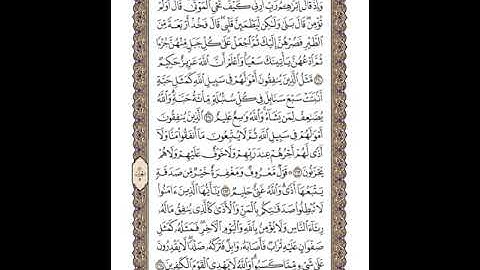 وَإِذْ قَالَ إِبْرَٰهِـۧمُ رَبِّ أَرِنِي كَيْفَ تُحْيِ ٱلْمَوْتَىٰ قَالَ أَوَلَمْ
تُؤْمِن قَالَ بَلَىٰ وَلَٰكِن لِّيَطْمَئِنَّ قَلْبِي قَالَ فَخُذْ أَرْبَعَةً مِّنَ
ٱلطَّيْرِ فَصُرْهُنَّ إِلَيْكَ ثُمَّ ٱجْعَلْ عَلَىٰ كُلِّ جَبَلٍ مِّنْهُنَّ جُزْءًا
ثُمَّ ٱدْعُهُنَّ يَأْتِينَكَ سَعْيًا وَٱعْلَمْ أَنَّ ٱللَّهَ عَزِيزٌ حَكِيمٌ
۝٢٦٠ مَّثَلُ ٱلَّذِينَ يُنفِقُونَ أَمْوَٰلَهُمْ فِي سَبِيلِ ٱللَّهِ كَمَثَلِ حَبَّةٍ
أَنۢبَتَتْ سَبْعَ سَنَابِلَ فِي كُلِّ سُنۢبُلَةٍ مِّا۟ئَةُ حَبَّةٍ وَٱللَّهُ
يُضَٰعِفُ لِمَن يَشَآءُ وَٱللَّهُ وَٰسِعٌ عَلِيمٌ ۝٢٦١ ٱلَّذِينَ يُنفِقُونَ
أَمْوَٰلَهُمْ فِي سَبِيلِ ٱللَّهِ ثُمَّ لَا يُتْبِعُونَ مَآ أَنفَقُوا۟ مَنًّا وَلَآ
أَذًى لَّهُمْ أَجْرُهُمْ عِندَ رَبِّهِمْ وَلَا خَوْفٌ عَلَيْهِمْ وَلَا هُمْ
يَحْزَنُونَ ۝٢٦٢ قَوْلٌ مَّعْرُوفٌ وَمَغْفِرَةٌ خَيْرٌ مِّن صَدَقَةٍ
يَتْبَعُهَآ أَذًى وَٱللَّهُ غَنِيٌّ حَلِيمٌ ۝٢٦٣ يَٰٓأَيُّهَا ٱلَّذِينَ ءَامَنُوا۟
لَا تُبْطِلُوا۟ صَدَقَٰتِكُم بِٱلْمَنِّ وَٱلْأَذَىٰ كَٱلَّذِي يُنفِقُ مَالَهُۥ
رِئَآءَ ٱلنَّاسِ وَلَا يُؤْمِنُ بِٱللَّهِ وَٱلْيَوْمِ ٱلْءَاخِرِ فَمَثَلُهُۥ كَمَثَلِ
صَفْوَانٍ عَلَيْهِ تُرَابٌ فَأَصَابَهُۥ وَابِلٌ فَتَرَكَهُۥ صَلْدًا لَّا يَقْدِرُونَ
عَلَىٰ شَيْءٍ مِّمَّا كَسَبُوا۟ وَٱللَّهُ لَا يَهْدِي ٱلْقَوْمَ ٱلْكَٰفِرِينَ ۝٢٦٤